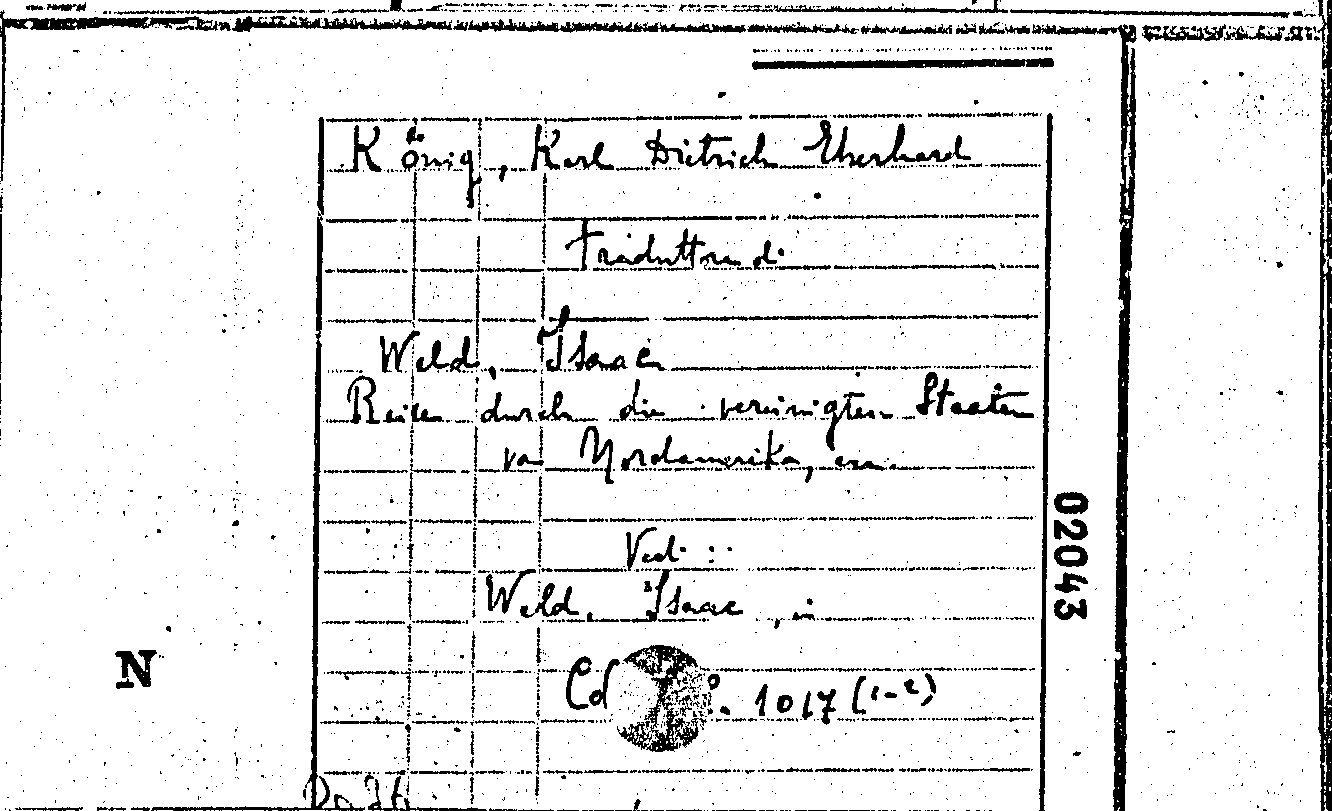 König, Karl Dietrich Eberhard
Traduttore di
Weld, Isaac
Reisen durch die vereinigten Staaten
von Nordamerika, ecc.
Ved. :
Weld, Isaac, in
1017 (1-2)
02043
N